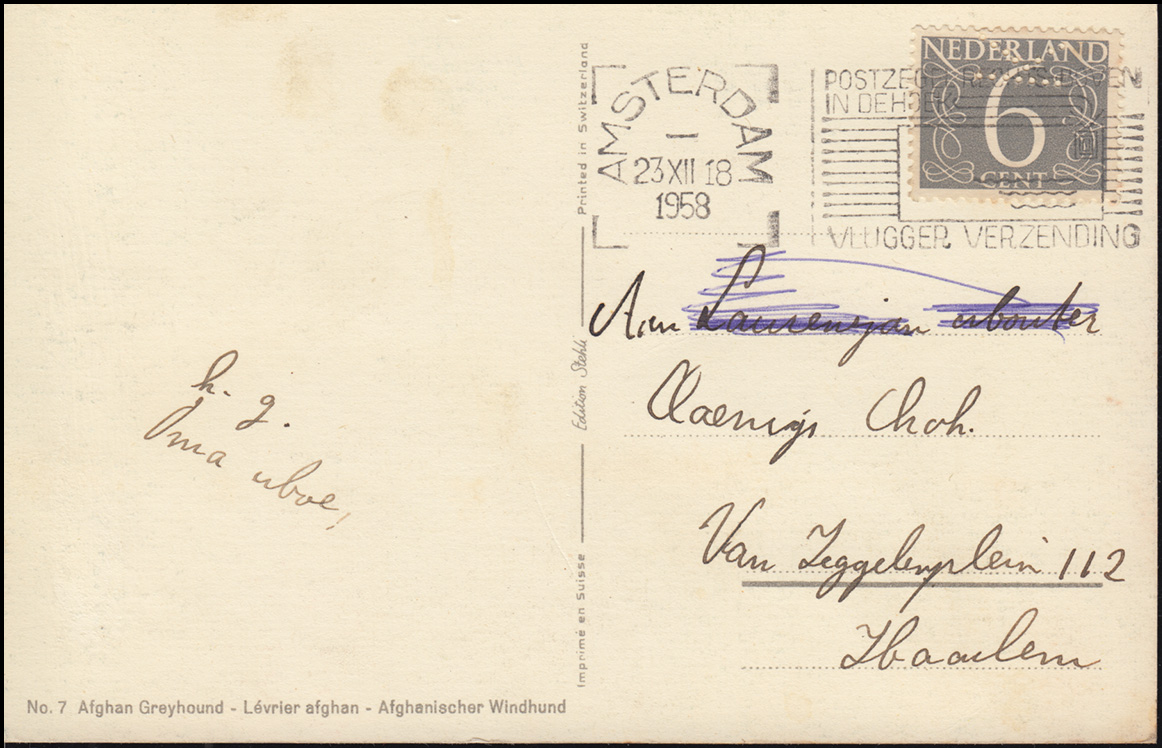 NEDERLAND
6
CENT
AMSTERDAM
23 XII 18
1958
IN DE
VLUGGER VERZENDING
Aan
Choh.
Van Zeggelenplein 112
Haarlem
h. g.
Oma
Printed in Switzerland
Edition Stehli
Imprimé en Suisse
No. 7 Afghan Greyhound - Lévrier afghan - Afghanischer Windhund